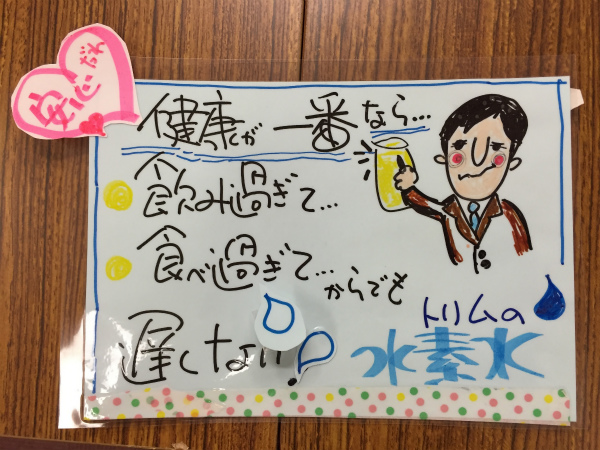 安心だね
健康が一番なら…
飲み過ぎて…
食べ過ぎて…からでも
遅くない
トリムの
水素水